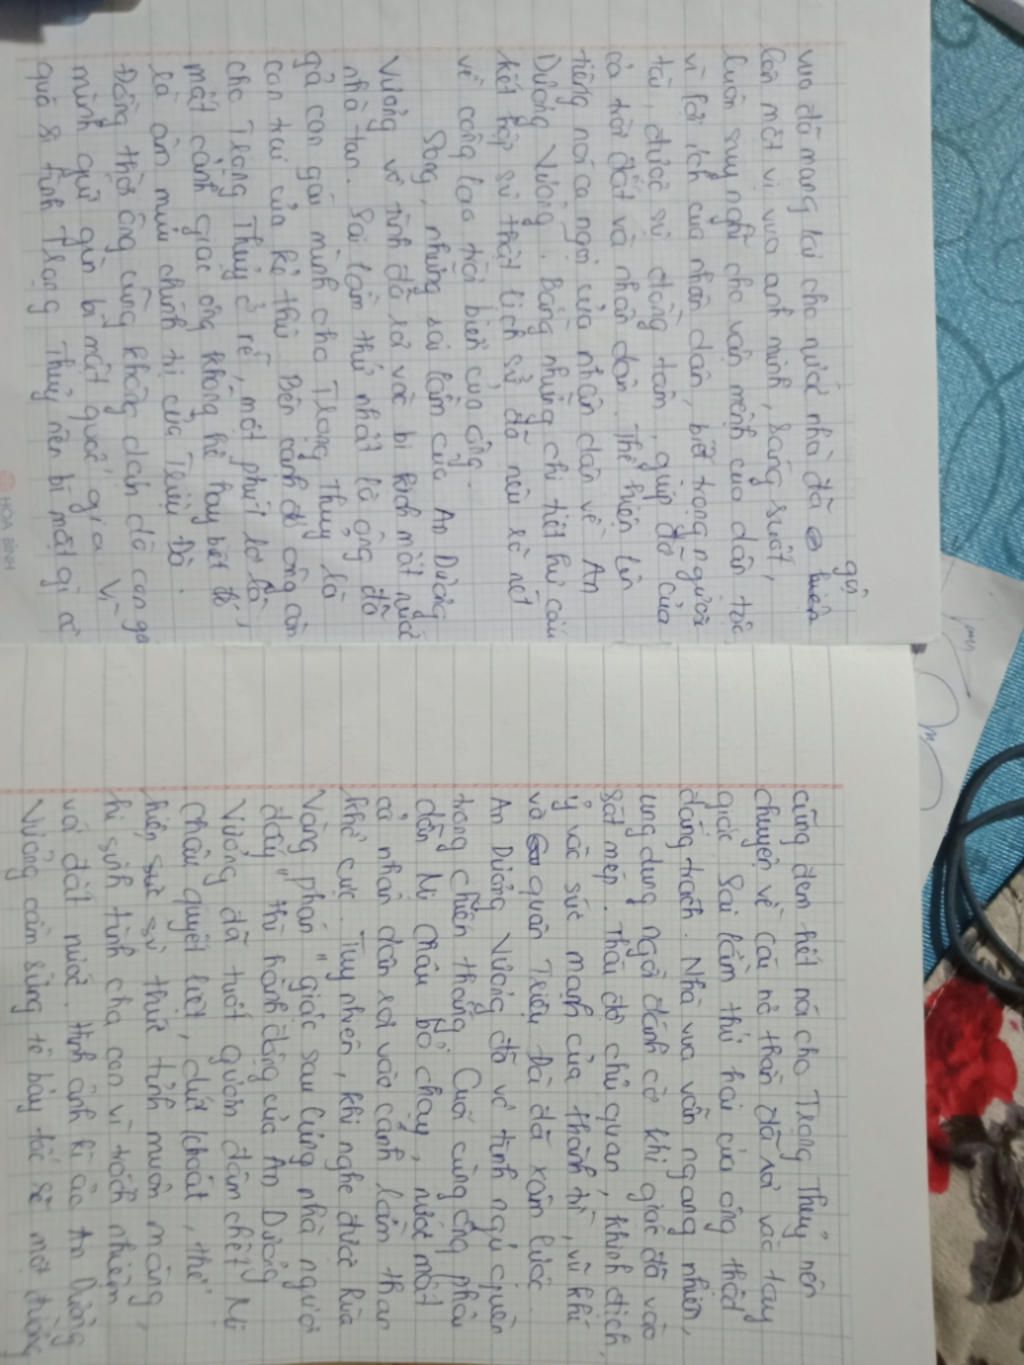 vua đã mang lại cho nước nhà đã hiện gữ
lên một vị vua anh minh, sáng suốt,
luôn suy nghĩ cho vận mệnh của dân tộc
vì lợi ích của nhân dân, biết trọng người
tài, được sự đồng tâm, giúp đỡ của
cả trời đất và nhân dân. Thể hiện lên
tiếng nói ca ngợi của nhân dân về An
Dương Vương. Bằng những chi tiết hư cấu
kết hợp sự thật lịch sử đã nêu rõ nét
về công lao trời biển của ông.
Song, những sai lầm của An Dương
Vương vô tình đã rơi vào bi kịch mất nước
nhà tan. Sai lầm thứ nhất là ông đã
gả con gái mình cho Trọng Thủy là
con trai của kẻ thù. Bên cạnh đó ông còn
cho Trọng Thủy ở rể, một phút lơ là,
mất cảnh giác ông không hề hay biết đó
là âm mưu chính trị của Triệu Đà.
Đồng thời ông cũng không dạy dỗ con gái
mình giữ gìn bí mật quốc gia. Vì
quá si tình Trọng Thủy nên bí mật gì cô
HÒA BÌNH
cũng đem hết nói cho Trọng Thủy nên
chuyện về cái nỏ thần đã rơi vào tay
giặc. Sai lầm thứ hai của ông thật
đáng trách. Nhà vua vẫn ngang nhiên,
ung dung ngồi đánh cờ khi giặc đã vào
sát mép. Thái độ chủ quan, khinh địch,
ỷ vào sức mạnh của thành trì, vũ khí
và quân Triệu Đà đã xâm lược.
An Dương Vương đã vô tình ngủ quên
trong chiến thắng. Cuối cùng ông phải
dẫn Mị Châu bỏ chạy, nước mất
cả nhân dân rơi vào cảnh lầm than
khổ cực. Tuy nhiên, khi nghe được Rùa
Vàng phán "giặc sau lưng nhà ngươi
đấy" thì hành động của An Dương
Vương đã tuốt gươm đâm chết Mị
Châu quyết liệt, dứt khoát, thể
hiện sự thức tỉnh muộn màng,
hi sinh tình cha con vì trách nhiệm
với đất nước. Hình ảnh kì ảo An Dương
Vương cầm sừng tê bảy tấc rẽ một đường